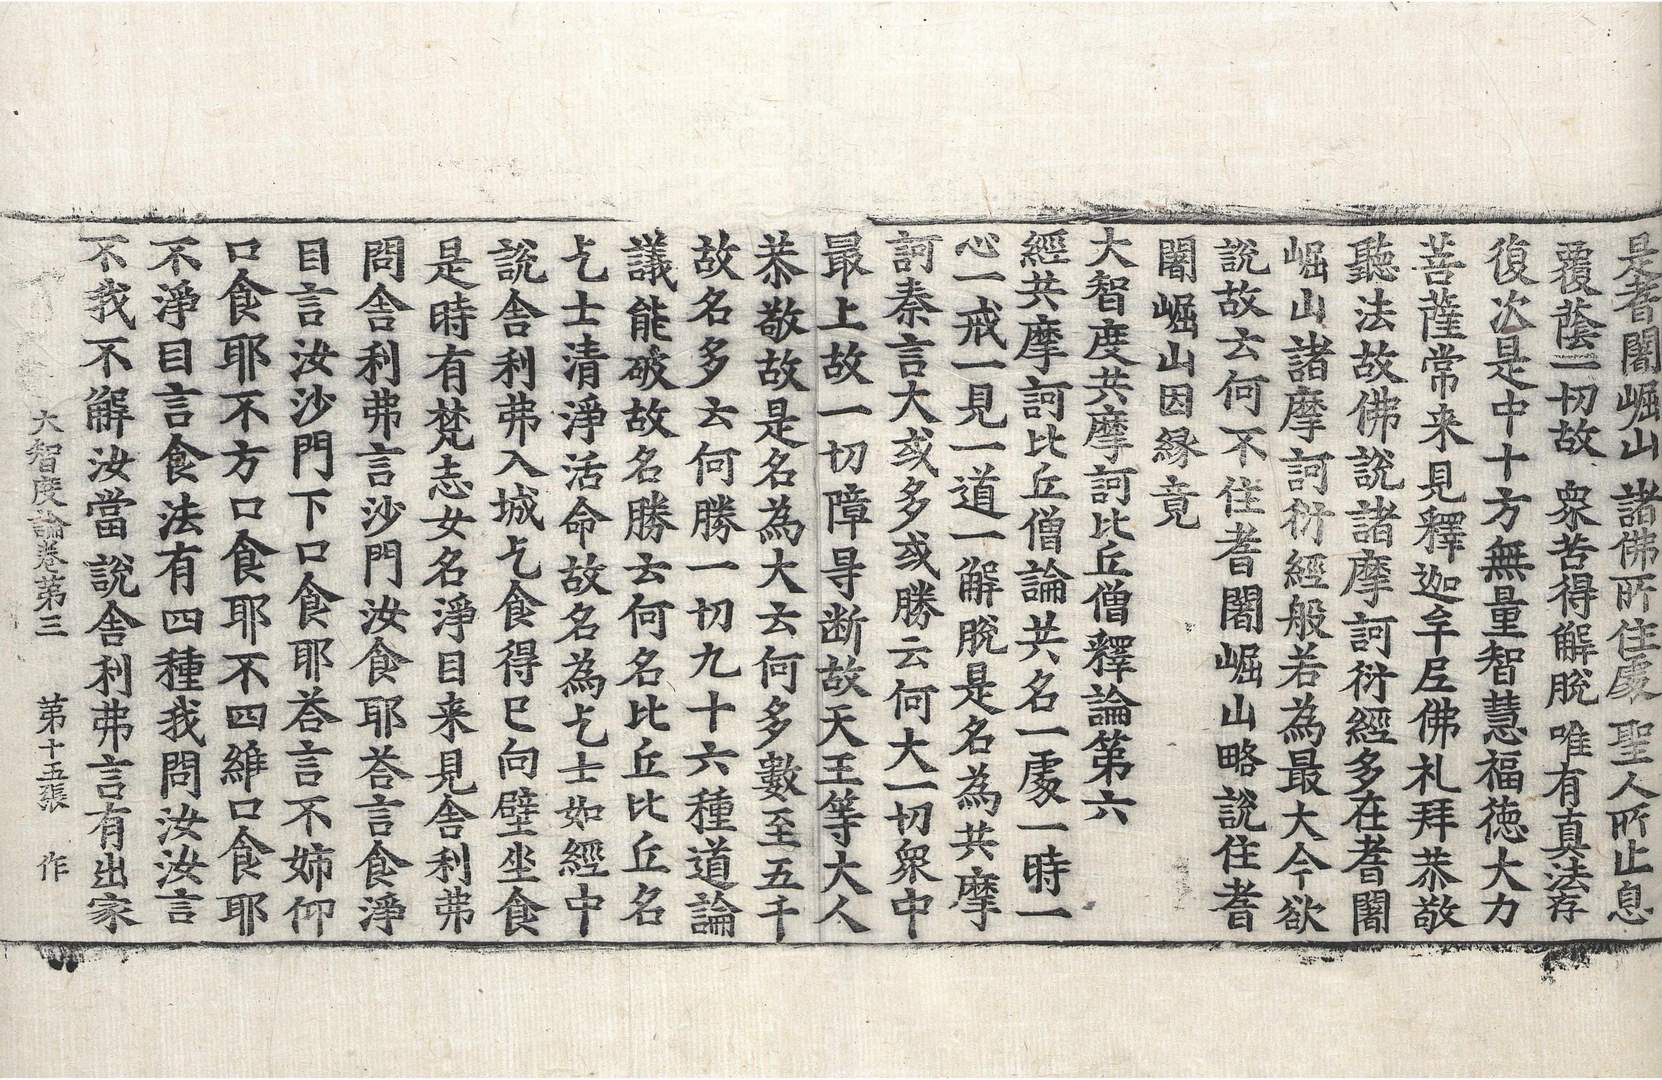 是耆闍崛山 諸佛所住處 聖人所止息
覆蔭一切故 衆苦得解脫 唯有真法存
復次是中十方無量智慧福徳大力
菩薩常来見釋迦牟尼佛礼拜恭敬
聽法故佛說諸摩訶衍經多在耆闍
崛山諸摩訶衍經般若為最大今欲
說故云何不住耆闍崛山略說住耆
闍崛山因緣竟
大智度共摩訶比丘僧釋論第六
經共摩訶比丘僧論共名一處一時一
心一戒一見一道一解脫是名為共摩
訶秦言大或多或勝云何大一切衆中
最上故一切障㝵断故天王等大人
恭敬故是名為大云何多數至五千
故名多云何勝一切九十六種道論
議能破故名勝云何名比丘比丘名
乞士清淨活命故名為乞士如經中
說舍利弗入城乞食得已向壁坐食
是時有梵志女名淨目来見舍利弗
問舍利弗言沙門汝食耶荅言食淨
目言汝沙門下口食耶荅言不姉仰
口食耶不方口食耶不四維口食耶
不淨目言食法有四種我問汝汝言
不我不解汝當說舍利弗言有出家
大智度論卷第三 第十五張 作